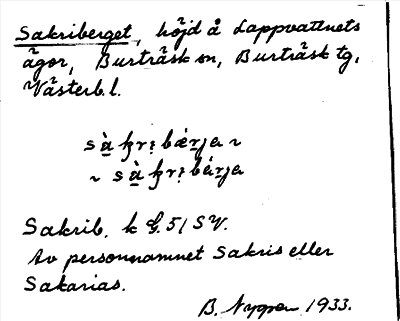 Sakriberget, höjd å Lappvattnets
ägor, Burträsk sn, Burträsk tg,
Västerb. l.
sàkri̥bǽrja ~
~ sàkri̥bárja
Sakrib. k G. 51 SV.
Av personnamnet Sakris eller
Sakarias.
B. Nygren 1933.